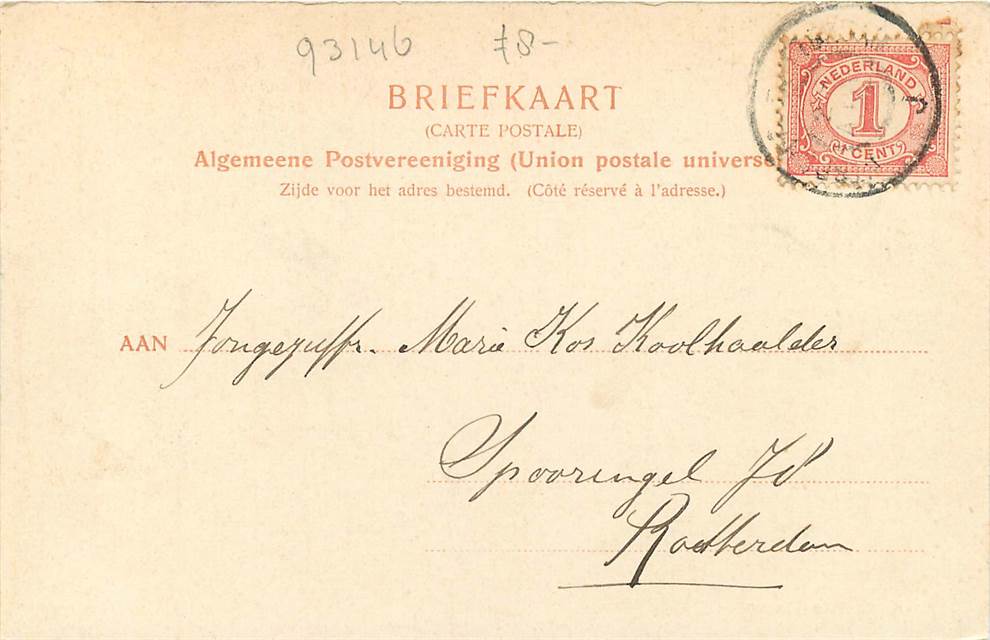 93146 f8-
BRIEFKAART
(CARTE POSTALE)
Algemeene Postvereeniging (Union postale universe
Zijde voor het adres bestemd. (Côté réservé à l'adresse.)
NEDERLAND
1
1 CENT
AAN Jongejuffr. Marie Kos Koolhaalder
Spooringel 78
Rotterdam